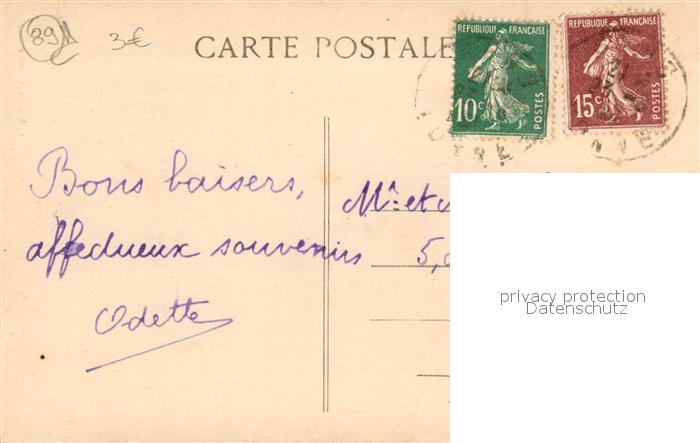 89
3€
CARTE POSTALE
REPUBLIQUE FRANÇAISE
10c
POSTES
REPUBLIQUE FRANÇAISE
15c
POSTES
Bons baisers,
affectueux souvenirs
Odette
Mr et
5,
privacy protection
Datenschutz